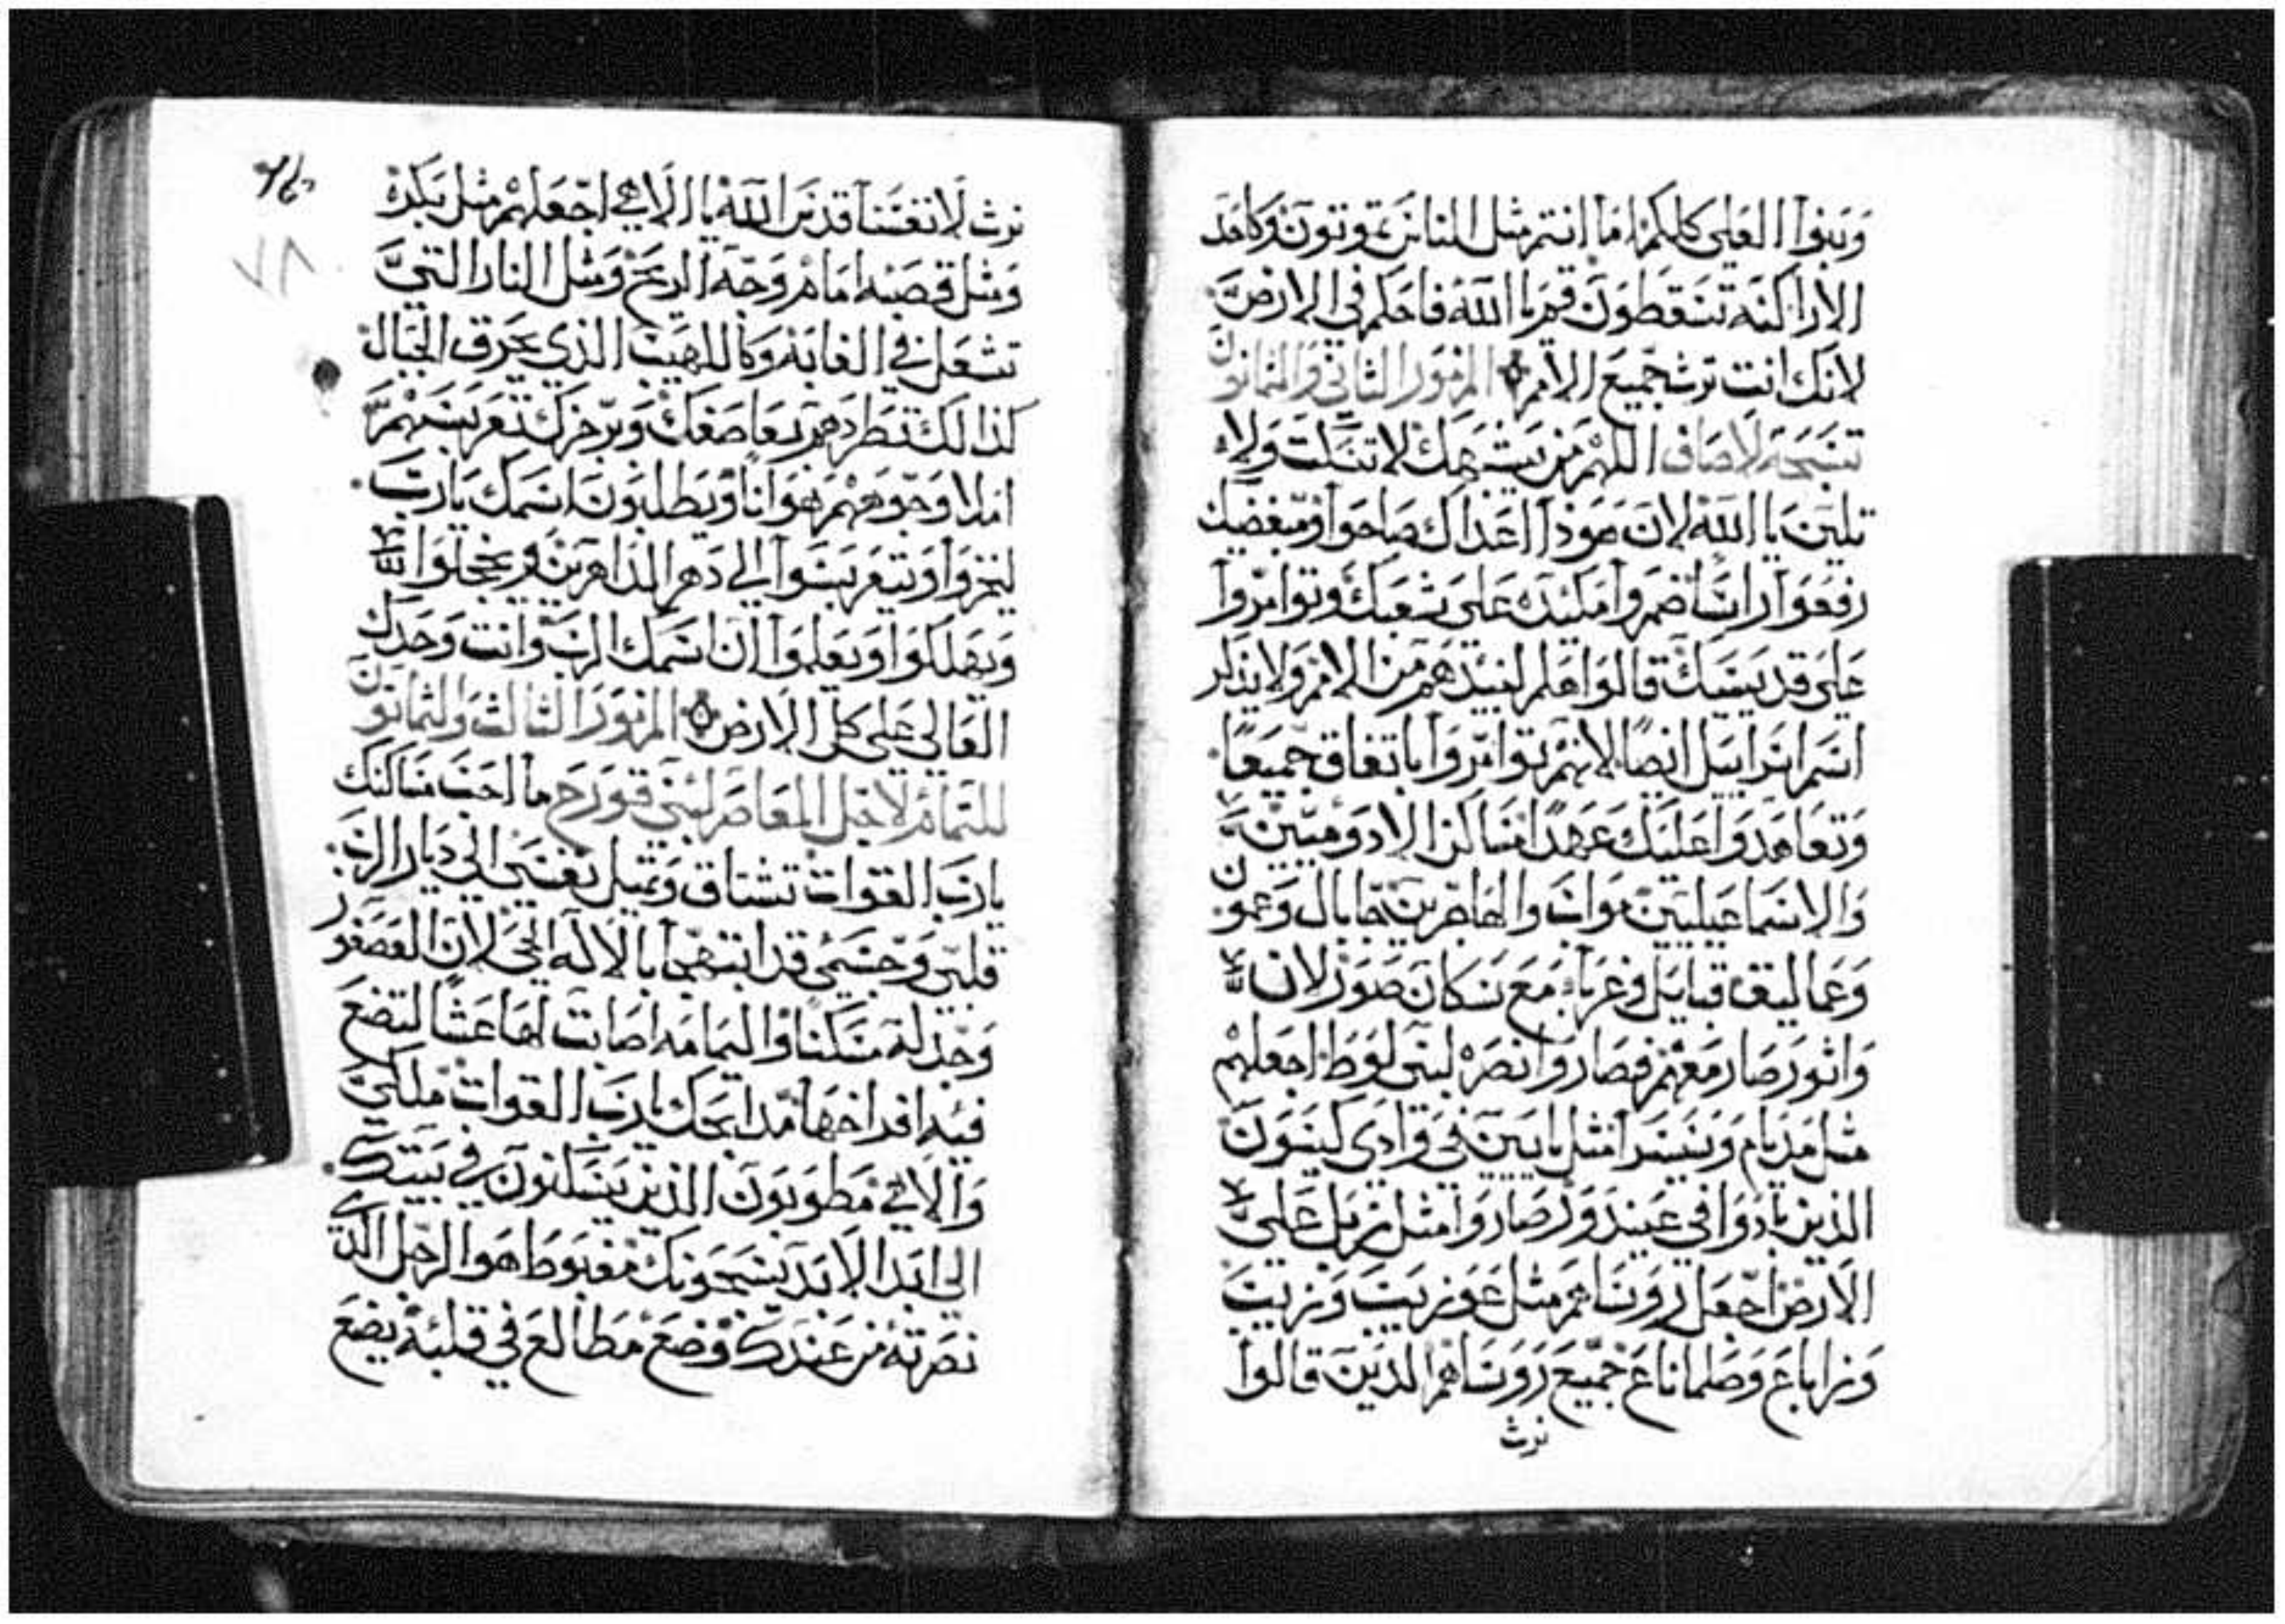 وبنوا العلي كلكم اما انتم مثل الناس تموتون وكاحد
الاراكنه تسقطون قم يا الله فاحكم في الارض
لانك انت ترث جميع الامم المزمور الثاني والثمانون
تسبحة لاصاف اللهم من يشبهك لا تسكت ولا
تلين يا الله لان هوذا اعداك صاحوا ومبغضيك
رفعوا راسا ضمروا مكيده علي شعبك وتوامروا
علي قديسيك قالوا هلم لنبيدهم من الامم ولا يذكر
اسم اسراييل ايضا لانهم توامروا باتفاق جميعا
وتعاهدوا عليك عهدا مساكن الادوميين
والاسماعيليين مواب والهاجريين جابال وعمون
وعماليق قبايل وغرباء مع سكان صور لان
واثور صار معهم فصاروا نصره لبني لوط اجعلهم
مثل مديام وسيسرا مثل يابين في وادي كيسون
الذين بادوا في عيندور صاروا مثل زبل علي
الارض اجعل روساهم مثل عوزيب وزيب
وزاباع وصلماناع جميع روساهم الذين قالوا
نرث
نرث لانفسنا قدس الله يا الاهي اجعلهم مثل بكره
ومثل قصبه امام وجه الريح ومثل النار التي
تشعل في الغابه وكاللهيب الذي يحرق الجبال
كذالك تطردهم بعاصفك وبزجرك تعربسهم
املا وجوههم هوانا ويطلبون اسمك يارب
ليخزوا ويتعربسوا الي دهر الداهرين ويخجلوا
ويهلكوا ويعلموا ان اسمك الرب وانت وحدك
العالي علي كل الارض المزمور الثالث والثمانون
للتمام لاجل المعاصر لبني قورح ما احب مساكنك
يارب القوات تشتاق وتميل نفسي الي ديار الرب
قلبي وجسمي قد ابتهجا بالاله الحي لان العصفور
وجد له مسكنا واليمامه اصابت لها عشا لتضع
فيه افراخها مدابحك يارب القوات ملكي
والاهي مطوبون الذين يسكنون في بيتك
الي ابد الابد يسبحونك مغبوط هو الرجل الذي
نصرته من عندك وضع مطالع في قلبه يضع